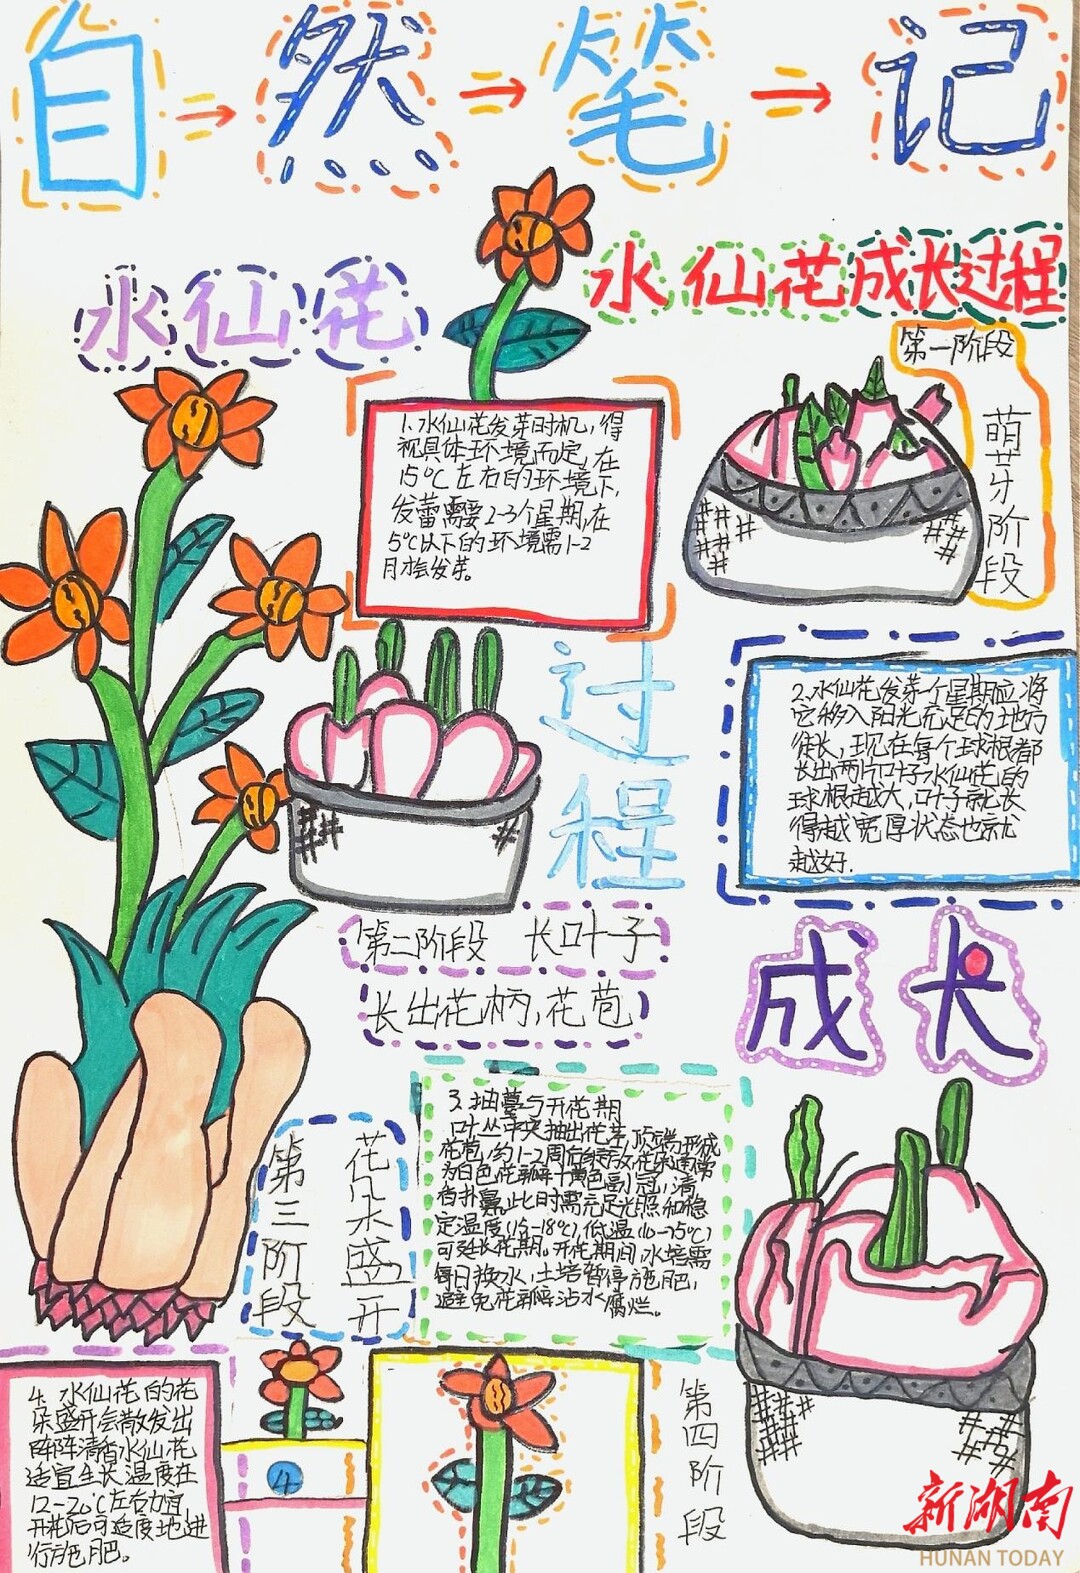 自然笔记
水仙花
水仙花成长过程
第一阶段
萌芽阶段
1.水仙花发芽时机，得
视具体环境而定，在
15℃左右的环境下，
发蕾需要2-3个星期，在
5℃以下的环境需1-2
月才会发芽。
2.水仙花发芽一个星期应将
它移入阳光充足的地方
徒长，现在每个球根都
长出两片叶子水仙花的
球根越大，叶子就长
得越宽厚状态也就
越好.
过程
第二阶段 长叶子
长出花柄，花苞
成长
第三阶段
花朵盛开
3.抽葶与开花期
叶丛中央抽出花茎，顶端形成
花苞，约1-2周后绽放花朵通常
为白色花瓣+黄色副冠，清
香扑鼻此时需充足光照和稳
定温度(15-18℃)，低温(10-15℃)
可延长花期。开花期间，水培需
每日换水，土培暂停施肥，
避免花瓣沾水腐烂。
4.水仙花的花
朵盛开会散发出
阵阵清香水仙花
适宜生长温度在
12-20℃左右为宜
开花后可适度地进
行施肥。
4
第四阶段
新湖南
HUNAN TODAY